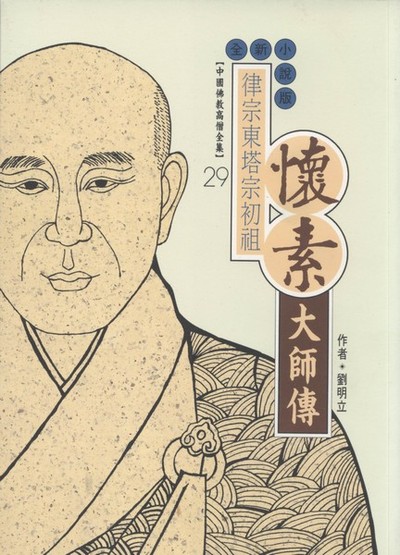 全新小說版
懷素
大師傳
律宗東塔宗初祖
【中國佛教高僧全集】
29
作者●劉明立